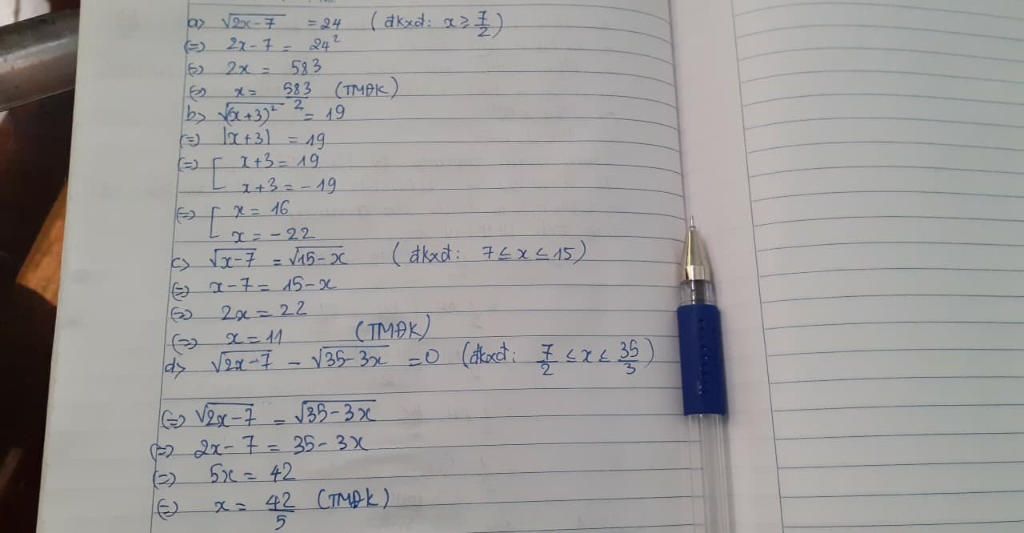 a) √2x-7 = 24 (đkxđ: x ≥ 7/2)
(=) 2x-7 = 24²
(=) 2x = 583
(=) x = 583/2 (TMĐK)
b) √(x+3)² = 19
(=) |x+3| = 19
(=) [ x+3 = 19
x+3 = -19
(=) [ x = 16
x = -22
c) √x-7 = √15-x (đkxđ: 7 ≤ x ≤ 15)
(=) x-7 = 15-x
(=) 2x = 22
(=) x = 11 (TMĐK)
d) √2x-7 - √35-3x = 0 (đkxđ: 7/2 ≤ x ≤ 35/3)
(=) √2x-7 = √35-3x
(=) 2x-7 = 35-3x
(=) 5x = 42
(=) x = 42/5 (TMĐK)